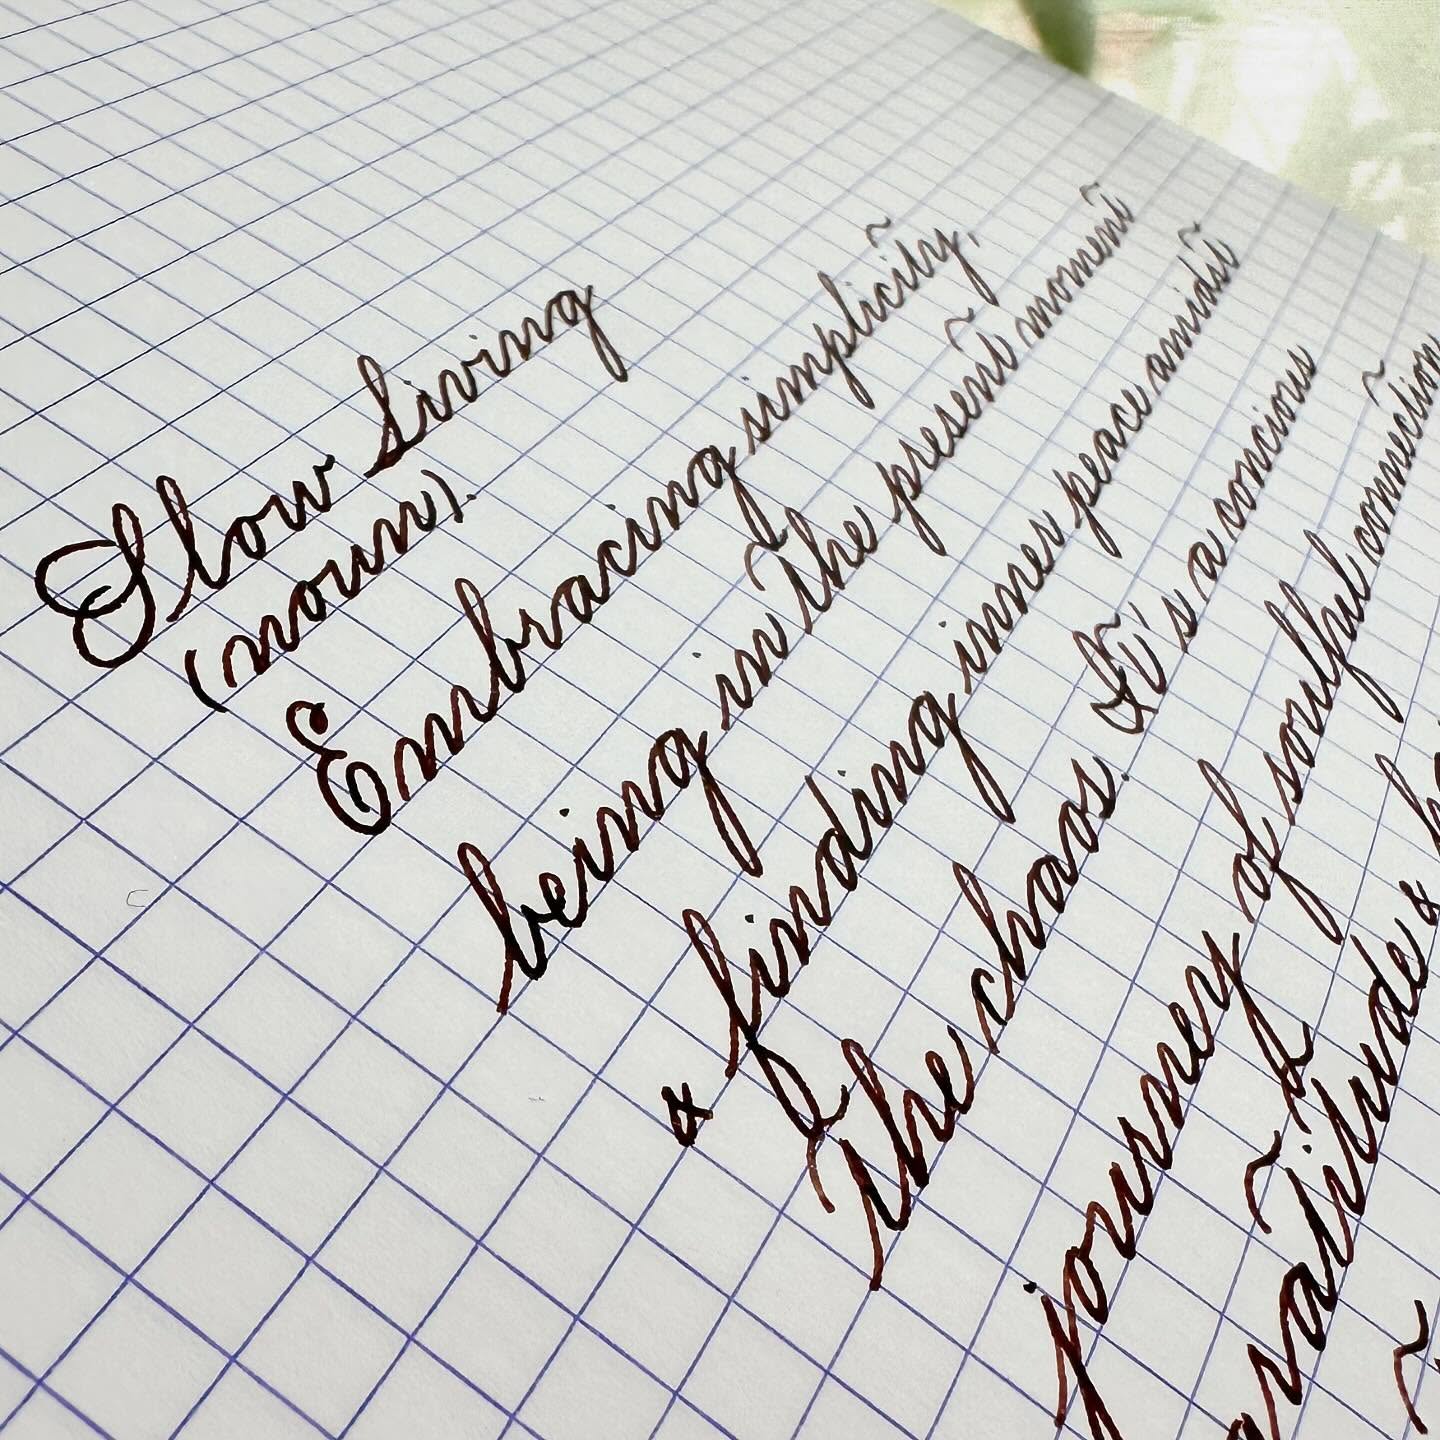 Slow Living
(noun).
Embracing simplicity,
being in the present moment
& finding inner peace amidst
the chaos. It's a concious
journey of soulful connection